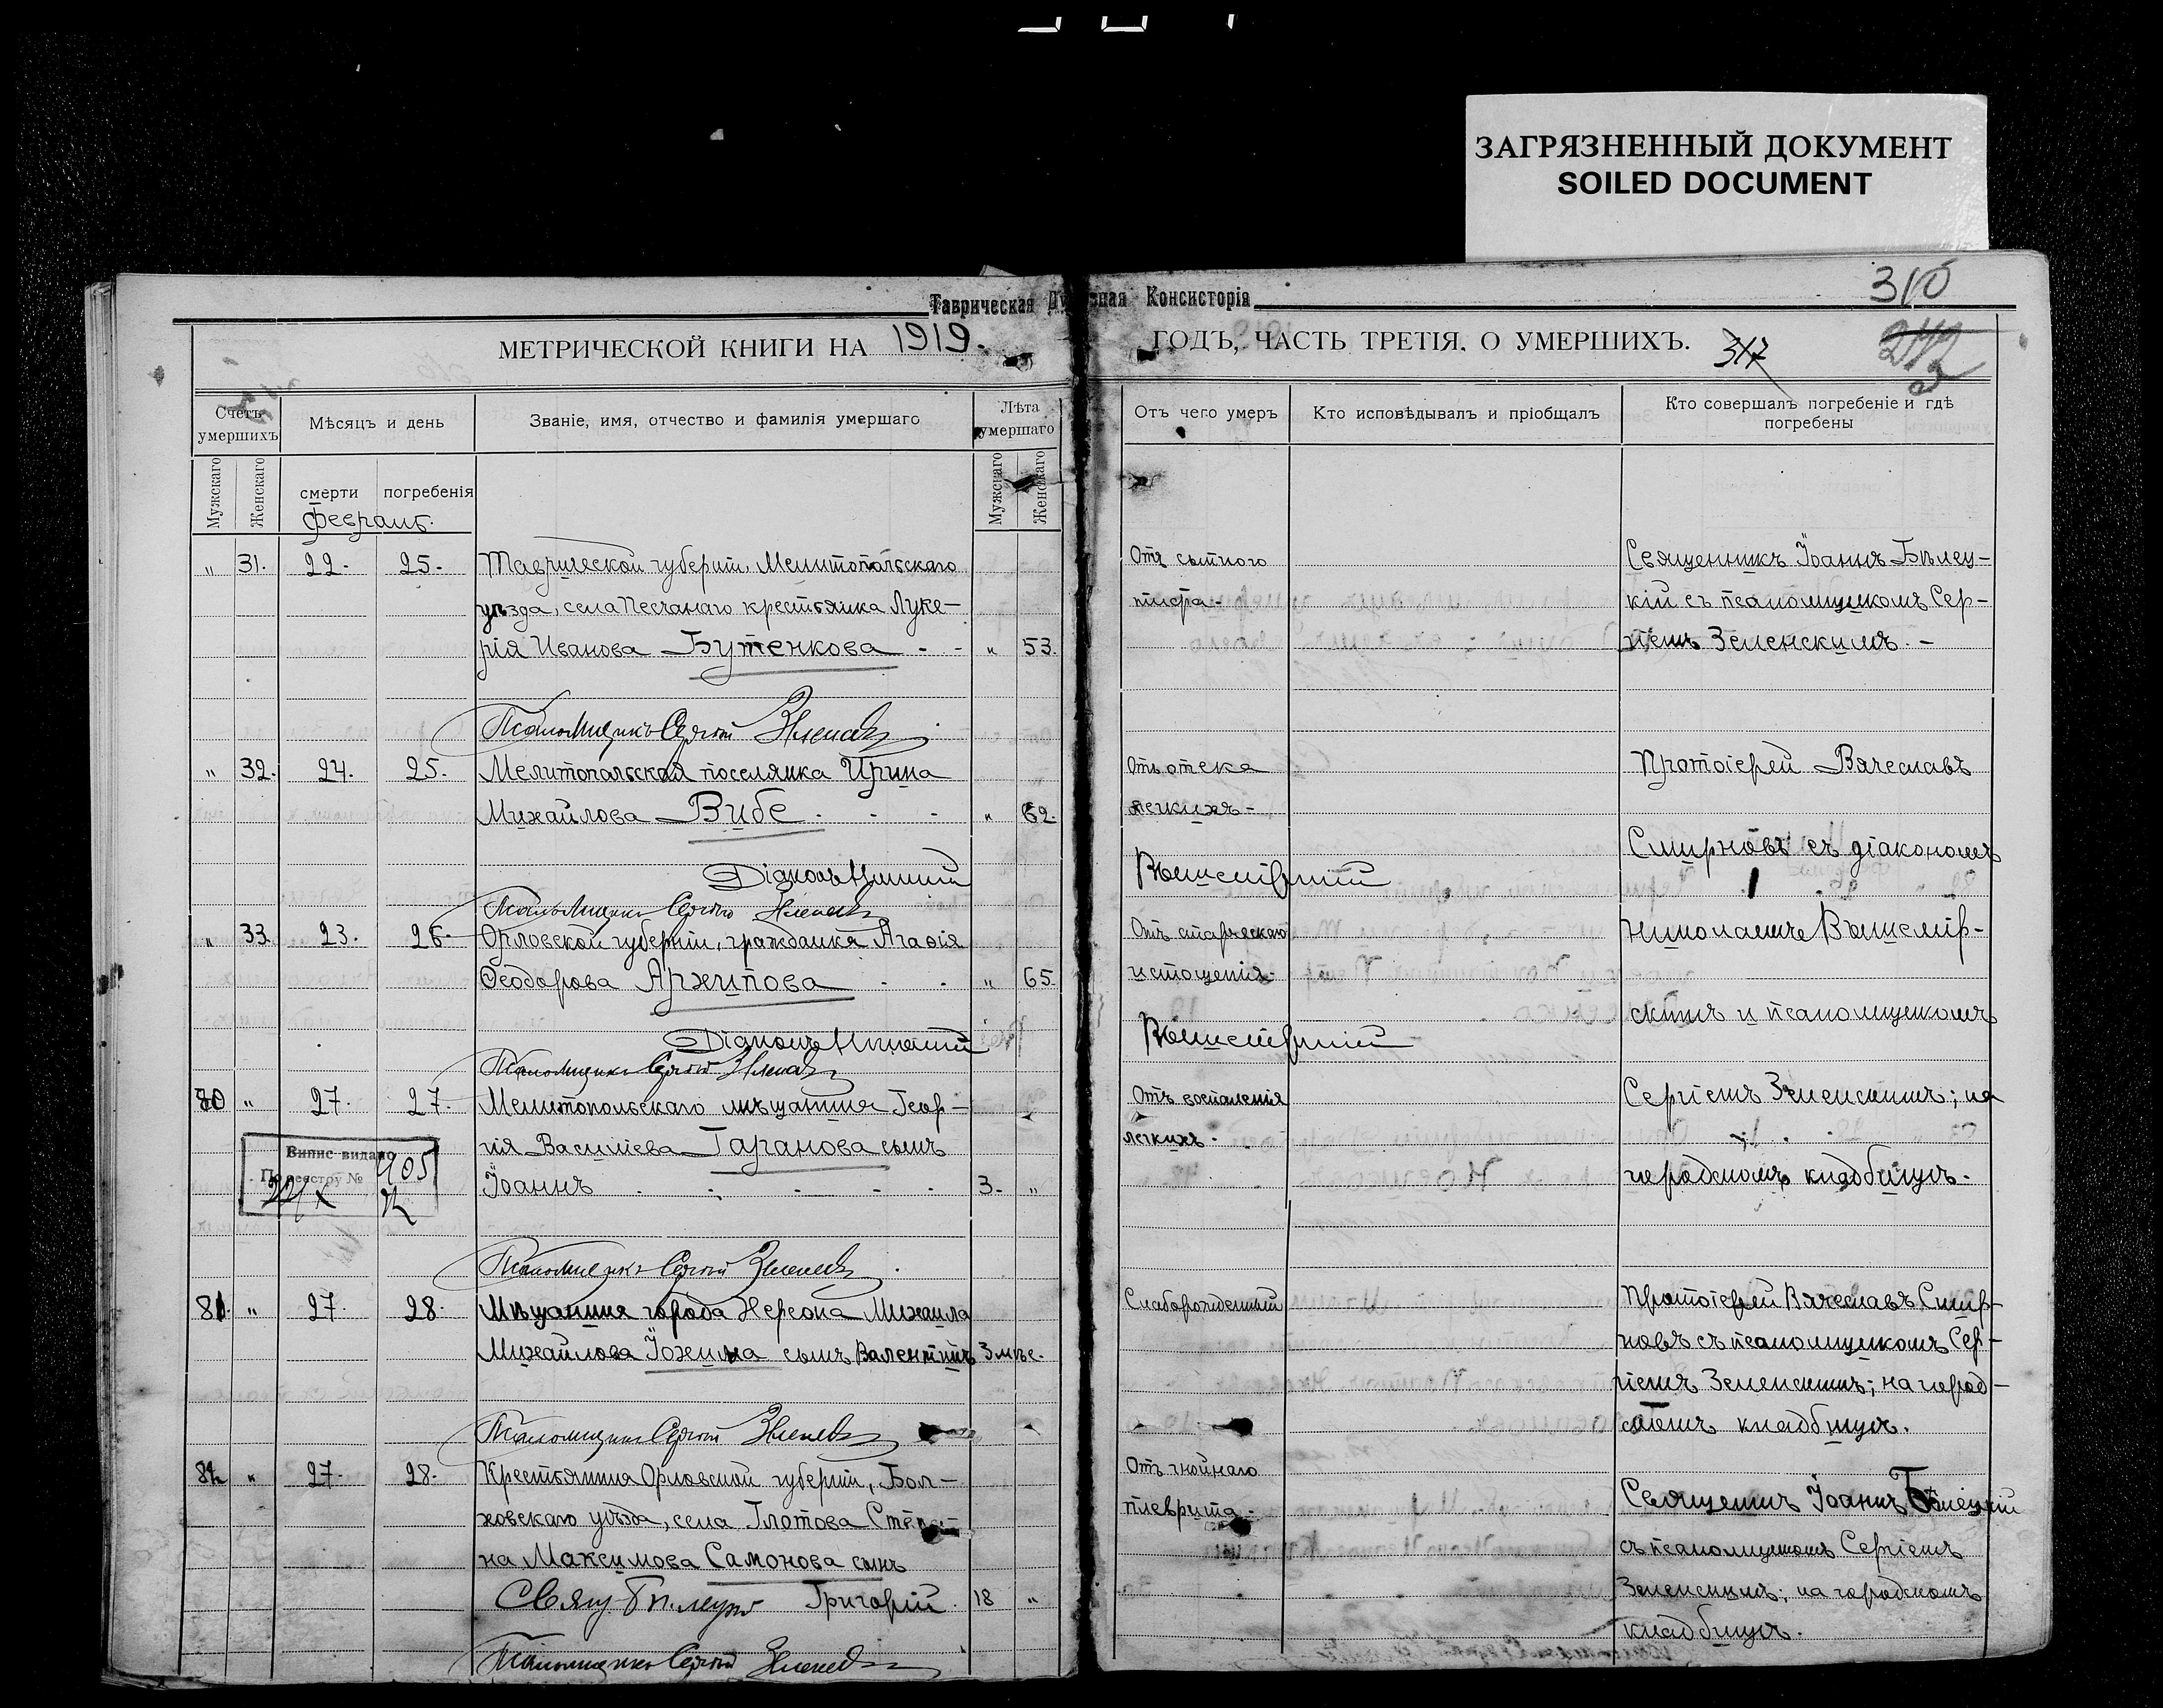 ЗАГРЯЗНЕННЫЙ ДОКУМЕНТ
SOILED DOCUMENT
Таврическая Духовная Консисторія
310
МЕТРИЧЕСКОЙ КНИГИ НА 1919.
ГОДЪ, ЧАСТЬ ТРЕТІЯ, О УМЕРШИХЪ. 317
Счетъ умершихъ
Мѣсяцъ и день
Званіе, имя, отчество и фамилія умершаго
Лѣта умершаго
Отъ чего умеръ
Кто исповѣдывалъ и пріобщалъ
Кто совершалъ погребеніе и гдѣ погребены
Мужскаго
Женскаго
смерти
погребенія
Мужскаго
Женскаго
февраль.
„ 31. 22. 25. Таврической губерніи, Мелитопольскаго
уѣзда, села Песчанаго крестьянка Луке-
рія Иванова Бутенкова - - „ 53.
Псаломщикъ Сергій Зеленскій
„ 32. 24. 25. Мелитопольская поселянка Ирина
Михайлова Вибе. - - „ 62.
Діаконъ Николай
Псаломщикъ Сергій Зеленскій
„ 33. 23. 26. Орловской губерніи, гражданка Агафія
Ѳеодорова Архипова - . „ 65.
Діаконъ Николай
Псаломщикъ Сергій Зеленскій
80 „ 27. 27. Мелитопольскаго мѣщанина Геор-
гія Васильева Гаранова сынъ
Іоаннъ 3. „
Випис видано
По реестру № 905
Псаломщикъ Сергій Зеленскій
81. „ 27. 28. Мѣщанина города Херсона Михаила
Михайлова Іохима сынъ Валентинъ 3 мѣс.
Псаломщикъ Сергій Зеленскій
82 „ 27. 28. Крестьянина Орловской губерніи, Бол-
ховскаго уѣзда, села Глотова Степа-
на Максимова Самонова сынъ
Свящ. Бѣлецкій Григорій. 18 „
Псаломщикъ Сергій Зеленскій
Отъ сыпного
тифа.
Отъ отека
легкихъ -
Вышемірскій
Отъ старческаго
истощенія.
Вышемірскій
Отъ воспаленія
легкихъ.
Слаборожденный
Отъ гнойнаго
плеврита.
Священникъ Іоаннъ Бѣлец-
кій съ псаломщикомъ Сер-
гіемъ Зеленскимъ. -
Протоіерей Вячеславъ
Смирновъ съ діакономъ
Николаемъ Вышемір-
скимъ и псаломщикомъ
Сергіемъ Зеленскимъ; на
городскомъ кладбищѣ.
Протоіерей Вячеславъ Смир-
новъ съ псаломщикомъ Сер-
гіемъ Зеленскимъ; на город-
скомъ кладбищѣ.
Священникъ Іоаннъ Бѣлецкій
съ псаломщикомъ Сергіемъ
Зеленскимъ; на городскомъ
кладбищѣ.